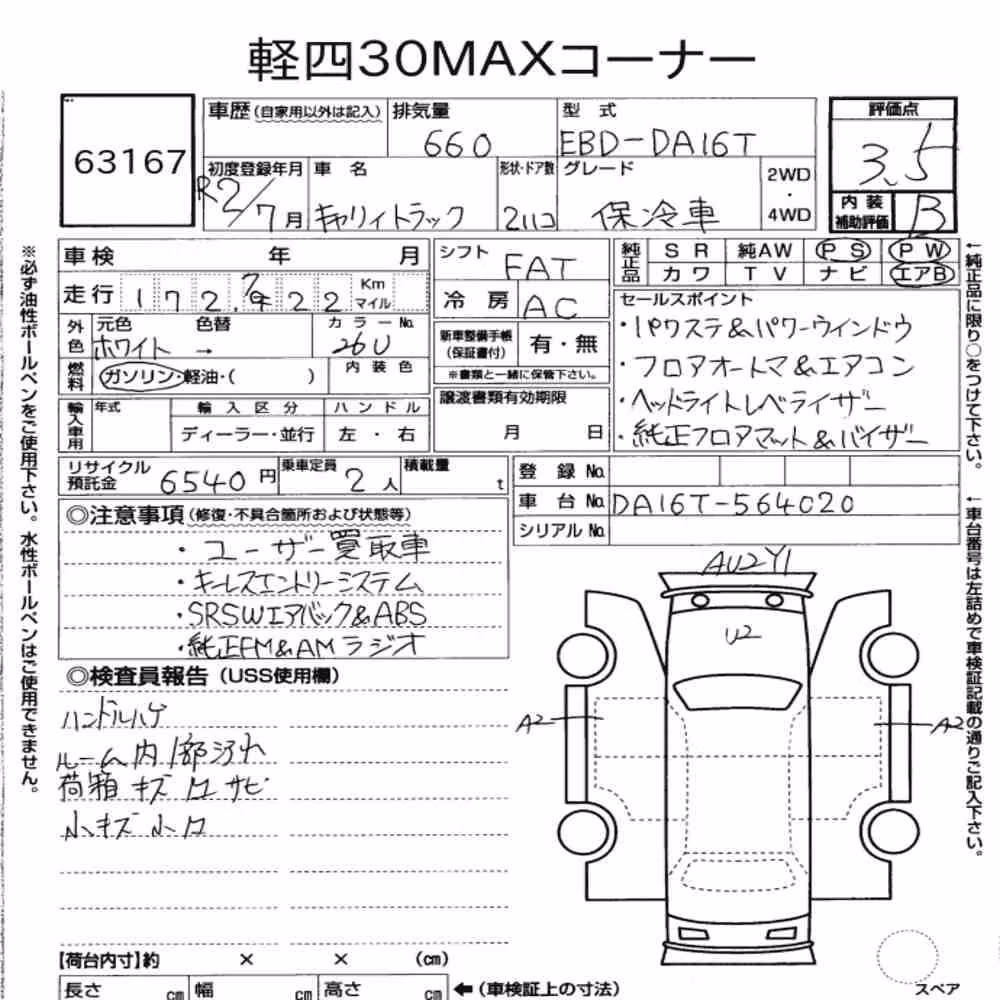 軽四30MAXコーナー
63167
車歴(自家用以外は記入) 排気量 660
型式 EBD-DA16T
評価点 3.5
内装補助評価 B
初度登録年月 R2/7月
車名 キャリィトラック
形状・ドア数 2ハコ
グレード 保冷車
2WD・4WD
車検 年 月
走行 172,922 Km マイル
シフト FAT
冷房 AC
純正品 SR 純AW PS PW
カワ TV ナビ エアB
外色 元色 ホワイト 色替 → カラーNo. 26U
燃料 ガソリン・軽油・( ) 内装色
新車整備手帳(保証書付) 有・無
※書類と一緒に保管下さい。
輸入車用 年式 輸入区分 ハンドル
ディーラー・並行 左・右
譲渡書類有効期限
月 日
セールスポイント
・パワステ&パワーウインドウ
・フロアオートマ&エアコン
・ヘッドライトレベライザー
・純正フロアマット&バイザー
リサイクル預託金 6540円
乗車定員 2人
積載量 t
登録No.
車台No. DA16T-564020
シリアルNo.
◎注意事項(修復・不具合箇所および状態等)
・ユーザー買取車
・キーレスエントリーシステム
・SRSWエアバック&ABS
・純正FM&AMラジオ
◎検査員報告(USS使用欄)
ハンドルハゲ
ルーム内1部汚れ
荷箱キズ凹サビ
小キズ小凹
AU2Y1
U2
A2
A2
スペア
【荷台内寸】約 × × (cm)
長さ cm 幅 cm 高さ cm ←(車検証上の寸法)
※必ず油性ボールペンをご使用下さい。水性ボールペンはご使用できません。
←純正品に限り○をつけて下さい。
←車台番号は左詰めで車検証記載の通りご記入下さい。